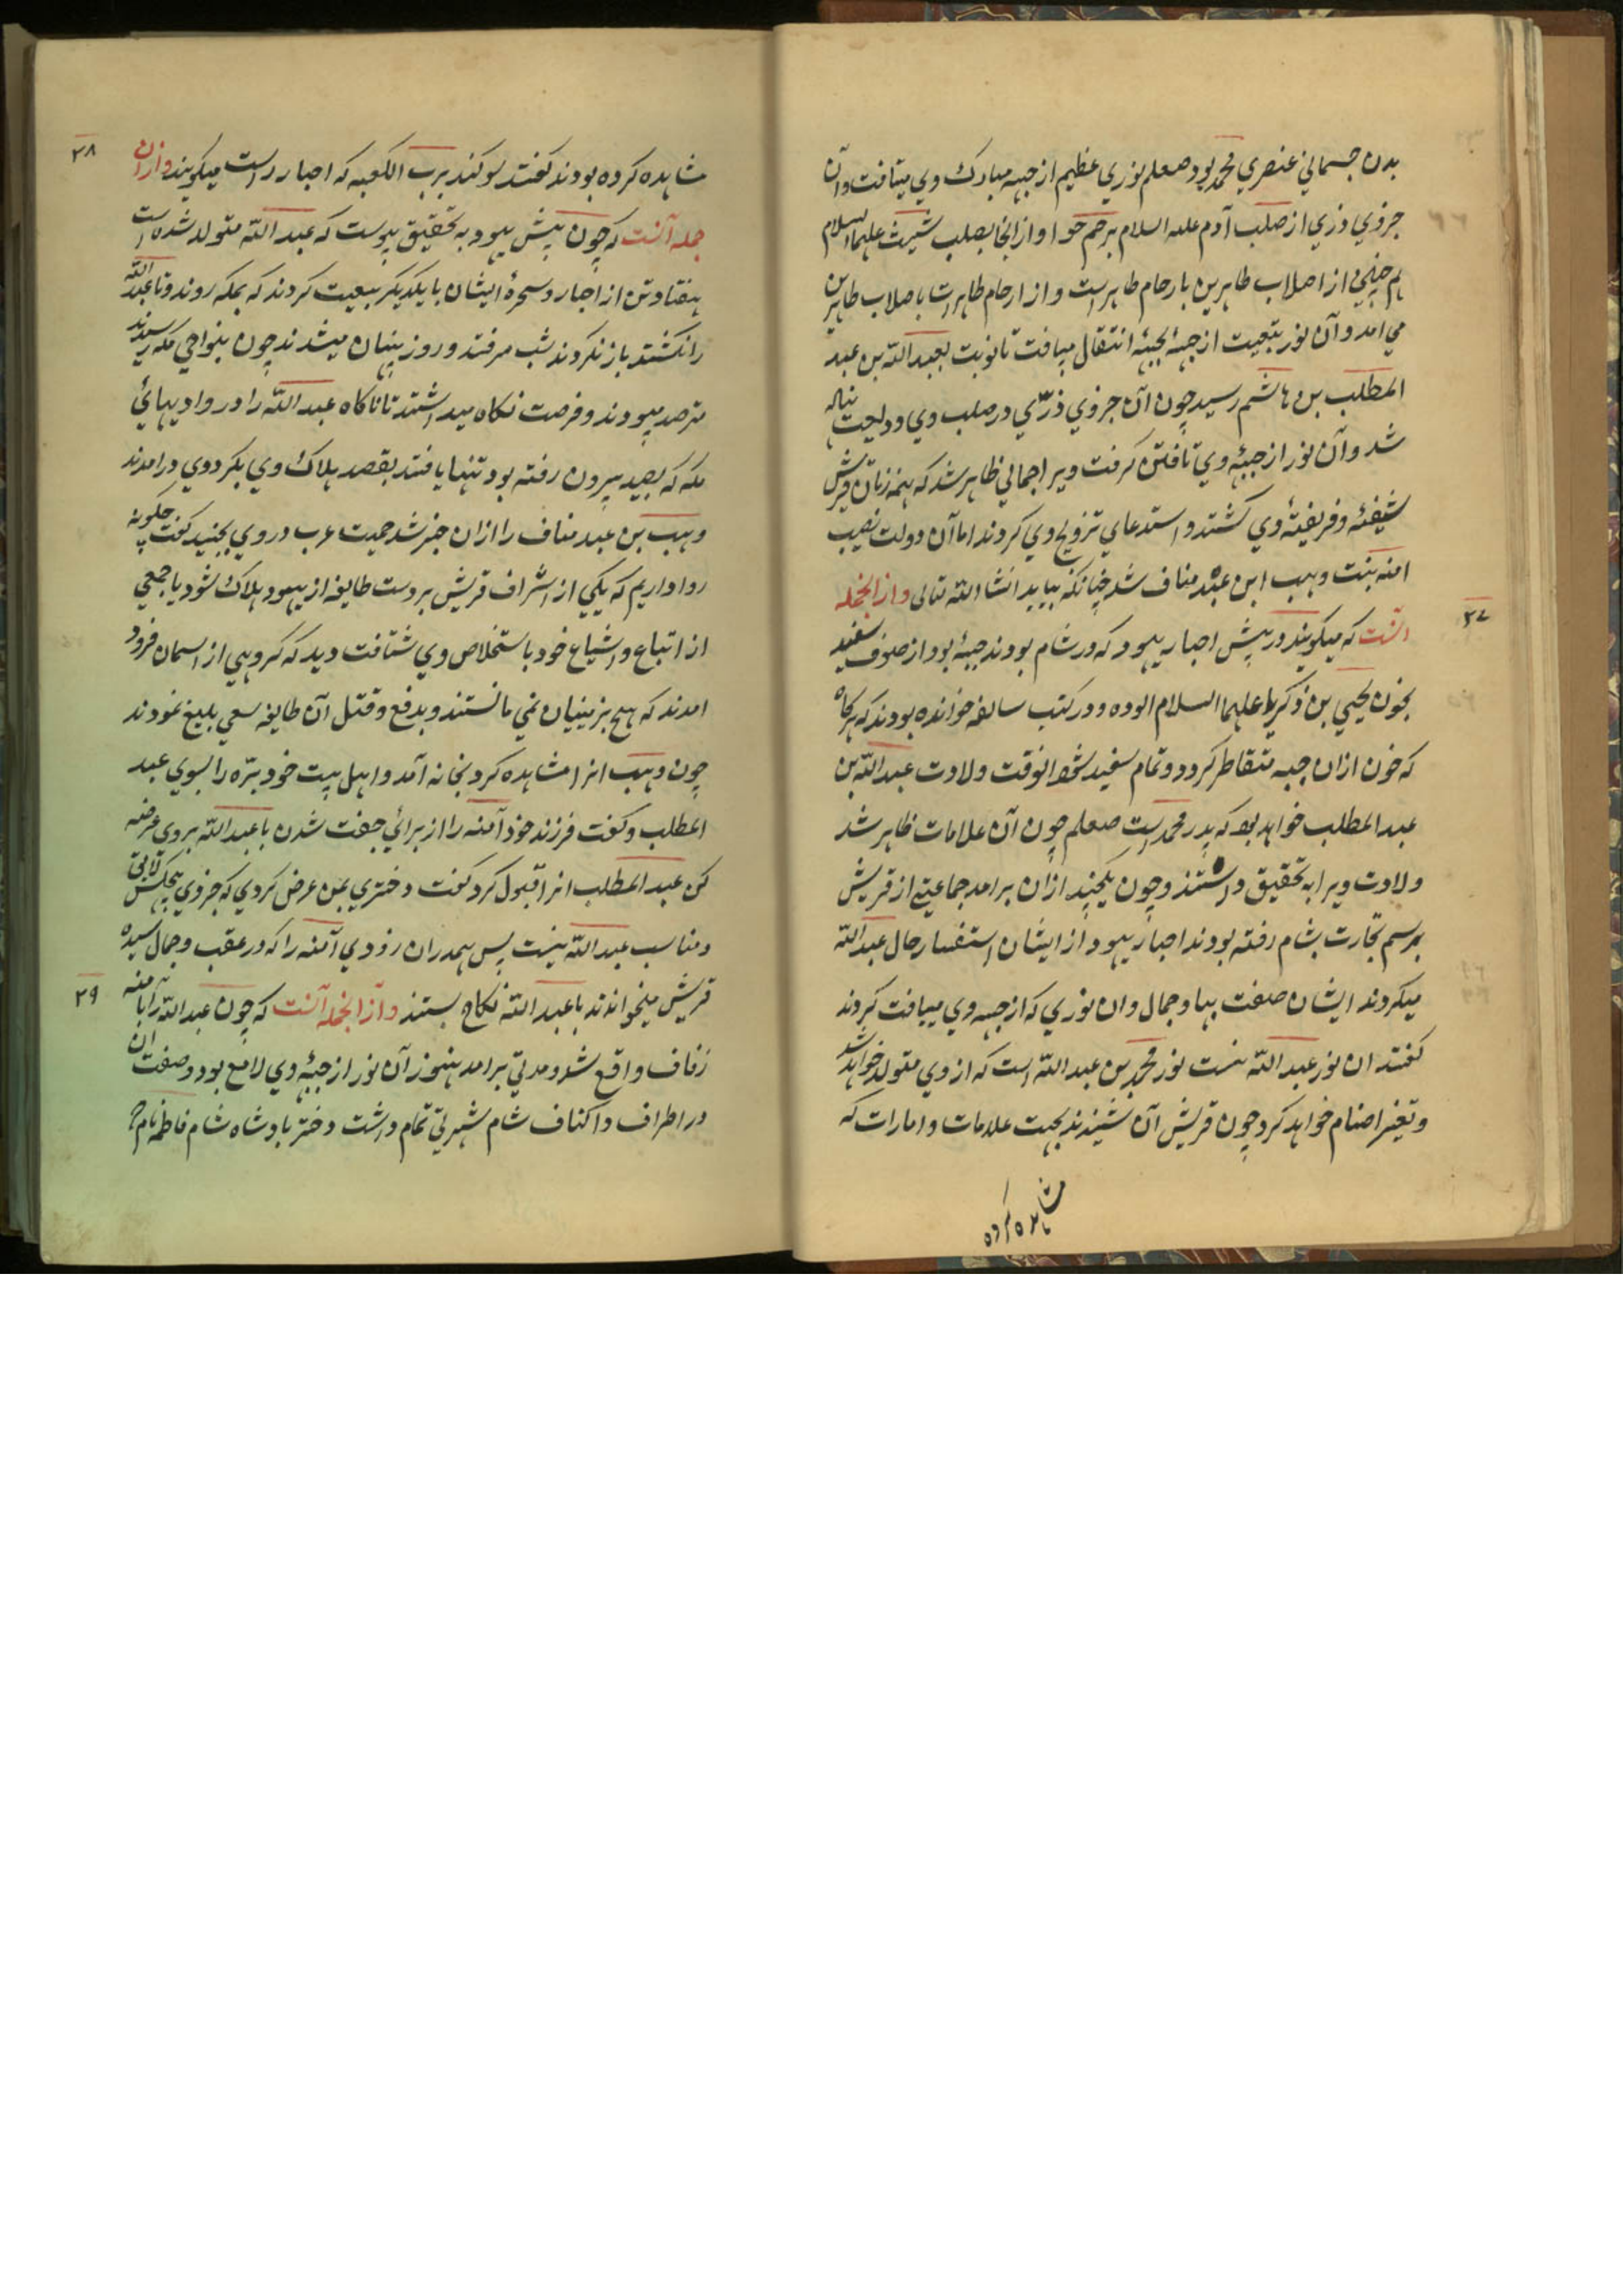 بدن جسماني عنصري محمد بود صعلم نوري عظيم از جبهه مبارك وي ميتافت وآن
جزوي ذري از صلب آدم عليه السلام برحم حوا و از انجا بصلب شيث عليهما السلام
همچنين از اصلاب طاهرين بارحام طاهرات و از ارحام طاهرات باصلاب طاهرين
مي امد و آن نور بتبعيت از جبهۀ بجبهۀ انتقال مييافت تا نوبت بعبد الله بن عبد
المطلب بن هاشم رسيد چون آن جزوي ذرّي در صلب وي وديعت نهاله
شد و آن نور از جبهۀ وي تافتن كرفت ويرا جمالي ظاهر شد كه همه زنان قريش
شيفتۀ و فريفتۀ وي كشتند و استدعاي تزويج وي كردند اما آن دولت نصيب
امنه بنت وهب ابن عبد مناف شد چنانكه بيايد انشا الله تعالي و از انجمله
۳۷
انست كه ميكويند در پيش احبار يهود كه در شام بودند جبۀ بود از صوف سفيد
بخون يحيي بن ذكريا عليهما السلام الوده و در كتب سالفه خوانده بودند كه هركاه
كه خون ازان جبه متقاطر كردد و تمام سفيد شود انوقت ولادت عبد الله بن
عبد المطلب خواهد بود كه پدر محمد است صعلم چون آن علامات ظاهر شد
ولادت ويرا به تحقيق دانستند و چون يكچند ازان برامد جماعتي از قريش
برسم تجارت بشام رفته بودند احبار يهود از ايشان استفسار حال عبد الله
ميكردند ايشان صفت بها و جمال و ان نوري كه از جبهه وي مييافت كردند
كفتند ان نور عبد الله نيست نور محمد بن عبد الله است كه از وي متولد خواهد شد
و تغير اصنام خواهد كرد چون قريش آن شنيدند بجهت علامات و امارات كه
مشاهده كرده
۳۸
مشاهده كرده بودند كفتند سوكند برب الكعبه كه احبار راست ميكويند و ازان
جمله آنست كه چون پيش يهود به تحقيق پيوست كه عبد الله متولد شده است
هفتاد تن از احبار و سحرۀ ايشان با يكديكر بيعت كردند كه بمكه روند و تا عبد الله
را نكشند باز نكردند شب مي رفتند و روز پنهان ميشدند چون بنواحي مكه رسيدند
مترصد ميبودند و فرصت نكاه ميداشتند تا ناكاه عبد الله را در واديهائي
مكه كه بصيد بيرون رفته بود تنها يافتند بقصد هلاك وي بكرد وي درامدند
وهب بن عبد مناف را ازان خبر شد حميت عرب در وي بجنبيد كفت چكونه
روا داريم كه يكي از اشراف قريش بر دست طايفه از يهود هلاك شود با جمعي
از اتباع و اشياع خود باستخلاص وي شتافت ديد كه كروهي از اسمان فرود
امدند كه هيچ بزمينيان نمي مانستند و بدفع و قتل آن طايفه سعي بليغ نمودند
چون وهب انرا مشاهده كرد بخانه آمد و اهل بيت خود برّه را بسوي عبد
المطلب و كفت فرزند خود آمنه را از برائي جفت شدن با عبد الله بروي عرضه
كن عبد المطلب انرا قبول كرد كفت دختري بمن عرض كردي كه جز وي هيچكس لايق
و مناسب عبد الله نيست پس همدران زودي آمنه را كه در عقب و جمال سيده
۳۹
قريش ميخواندند با عبد الله نكاح بستند و از انجمله آنست كه چون عبد الله را با منه
زفاف واقع شد و مدتي برامد هنوز آن نور از جبهۀ وي لامع بود و صفت ان
در اطراف و اكناف شام شهرتي تمام داشت دختر پادشاه شام فاطمه نام